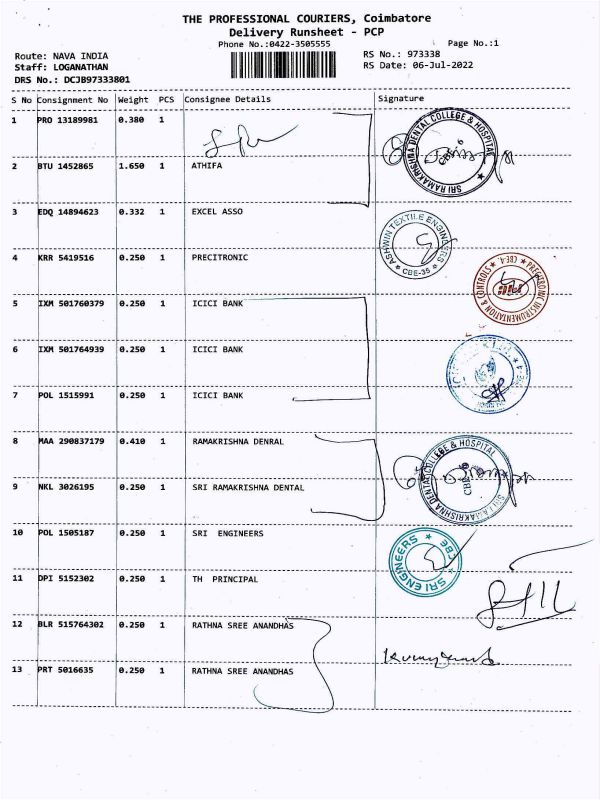 THE PROFESSIONAL COURIERS, Coimbatore
Delivery Runsheet - PCP
Phone No.:0422-3505555
Page No.:1
Route: NAVA INDIA
RS No.: 973338
Staff: LOGANATHAN
RS Date: 06-Jul-2022
DRS No.: DCJB97333801
S No Consignment No Weight PCS Consignee Details Signature
1 PRO 13189981 0.380 1
SRI RAMAKRISHNA DENTAL COLLEGE & HOSPITAL
CBE-6
2 BTU 1452865 1.650 1 ATHIFA
3 EDQ 14894623 0.332 1 EXCEL ASSO
ASHWIN TEXTILE ENGINEERS
CBE-35
4 KRR 5419516 0.250 1 PRECITRONIC
PRECITRONIC INSTRUMENTATION & CONTROLS ★ CBE-4 ★
5 IXM 501760379 0.250 1 ICICI BANK
6 IXM 501764939 0.250 1 ICICI BANK
7 POL 1515991 0.250 1 ICICI BANK
8 MAA 290837179 0.410 1 RAMAKRISHNA DENRAL
SRI RAMAKRISHNA DENTAL COLLEGE & HOSPITAL
CBE-6
9 NKL 3026195 0.250 1 SRI RAMAKRISHNA DENTAL
10 POL 1505187 0.250 1 SRI ENGINEERS
SRI ENGINEERS ★ CBE ★
11 DPI 5152302 0.250 1 TH PRINCIPAL
12 BLR 515764302 0.250 1 RATHNA SREE ANANDHAS
13 PRT 5016635 0.250 1 RATHNA SREE ANANDHAS